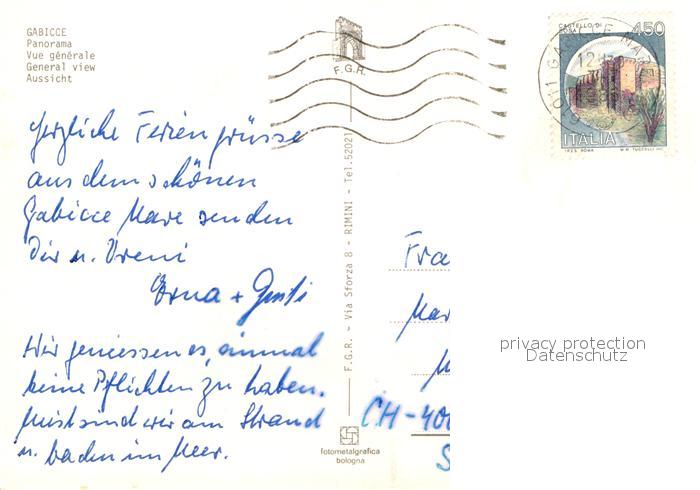 GABICCE
Panorama
Vue générale
General view
Aussicht
F.G.R.
CASTELLO DI
450
ITALIA
I.P.Z.S. ROMA
GABICCE MARE
12
Herzliche Feriengrüsse
aus dem schönen
Gabicce Mare senden
Dir u. Vreni
Erna + Gusti
Wir geniessen es, einmal
keine Pflichten zu haben.
Meist sind wir am Strand
u. baden im Meer.
F.G.R. - Via Sforza 8 - RIMINI - Tel. 52021
fotometalgrafica
bologna
Fra
Mar
CH-400
S
privacy protection
Datenschutz